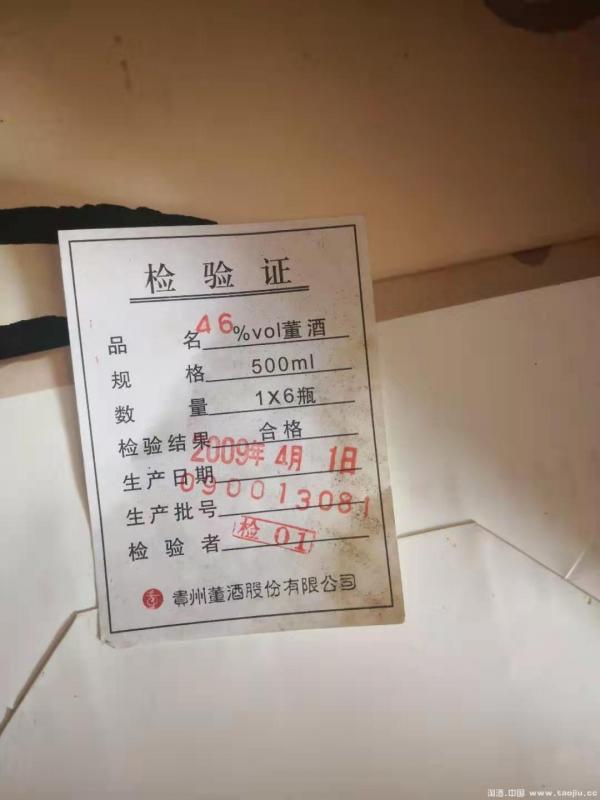 检验证
品名 46%vol董酒
规格 500ml
数量 1X6瓶
检验结果 合格
生产日期 2009年4月1日
生产批号 090013081
检验者 检01
貴州董酒股份有限公司
淘酒.中国 www.taojiu.cc